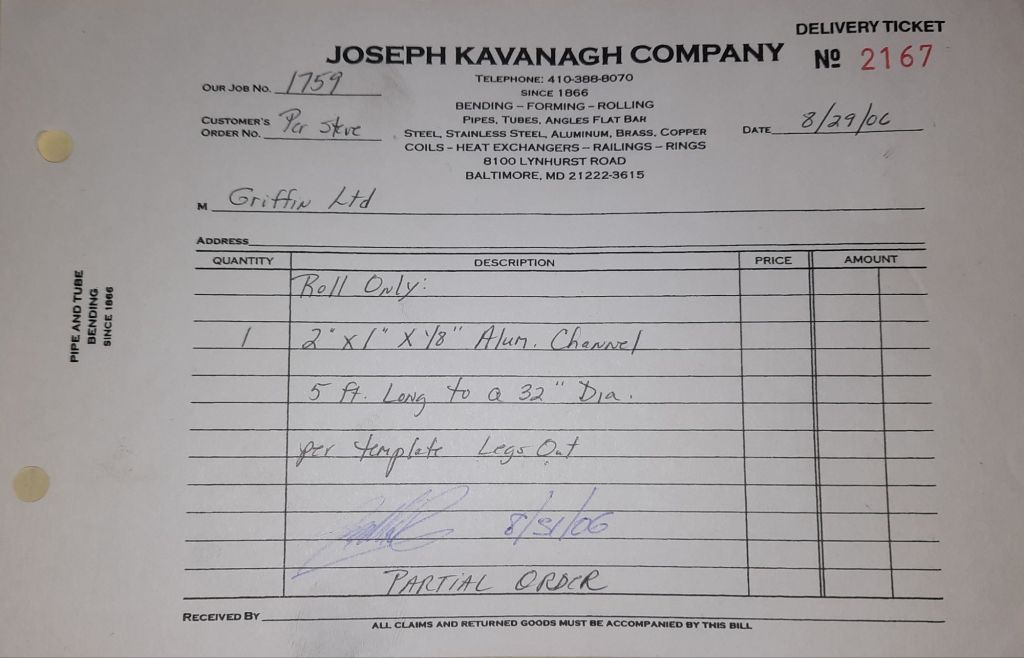 DELIVERY TICKET
JOSEPH KAVANAGH COMPANY
Nº 2167
TELEPHONE: 410-388-8070
SINCE 1866
BENDING – FORMING – ROLLING
PIPES, TUBES, ANGLES FLAT BAR
STEEL, STAINLESS STEEL, ALUMINUM, BRASS, COPPER
COILS – HEAT EXCHANGERS – RAILINGS – RINGS
8100 LYNHURST ROAD
BALTIMORE, MD 21222-3615
OUR JOB NO. 1759
CUSTOMER'S
ORDER NO. Per Steve
DATE 8/29/06
M Griffin Ltd
ADDRESS
QUANTITY DESCRIPTION PRICE AMOUNT
Roll Only:
1 2" x 1" x 1/8" Alum. Channel
5 ft. Long to a 32" Dia.
per template Legs Out
8/31/06
PARTIAL ORDER
RECEIVED BY
ALL CLAIMS AND RETURNED GOODS MUST BE ACCOMPANIED BY THIS BILL
PIPE AND TUBE
BENDING
SINCE 1866